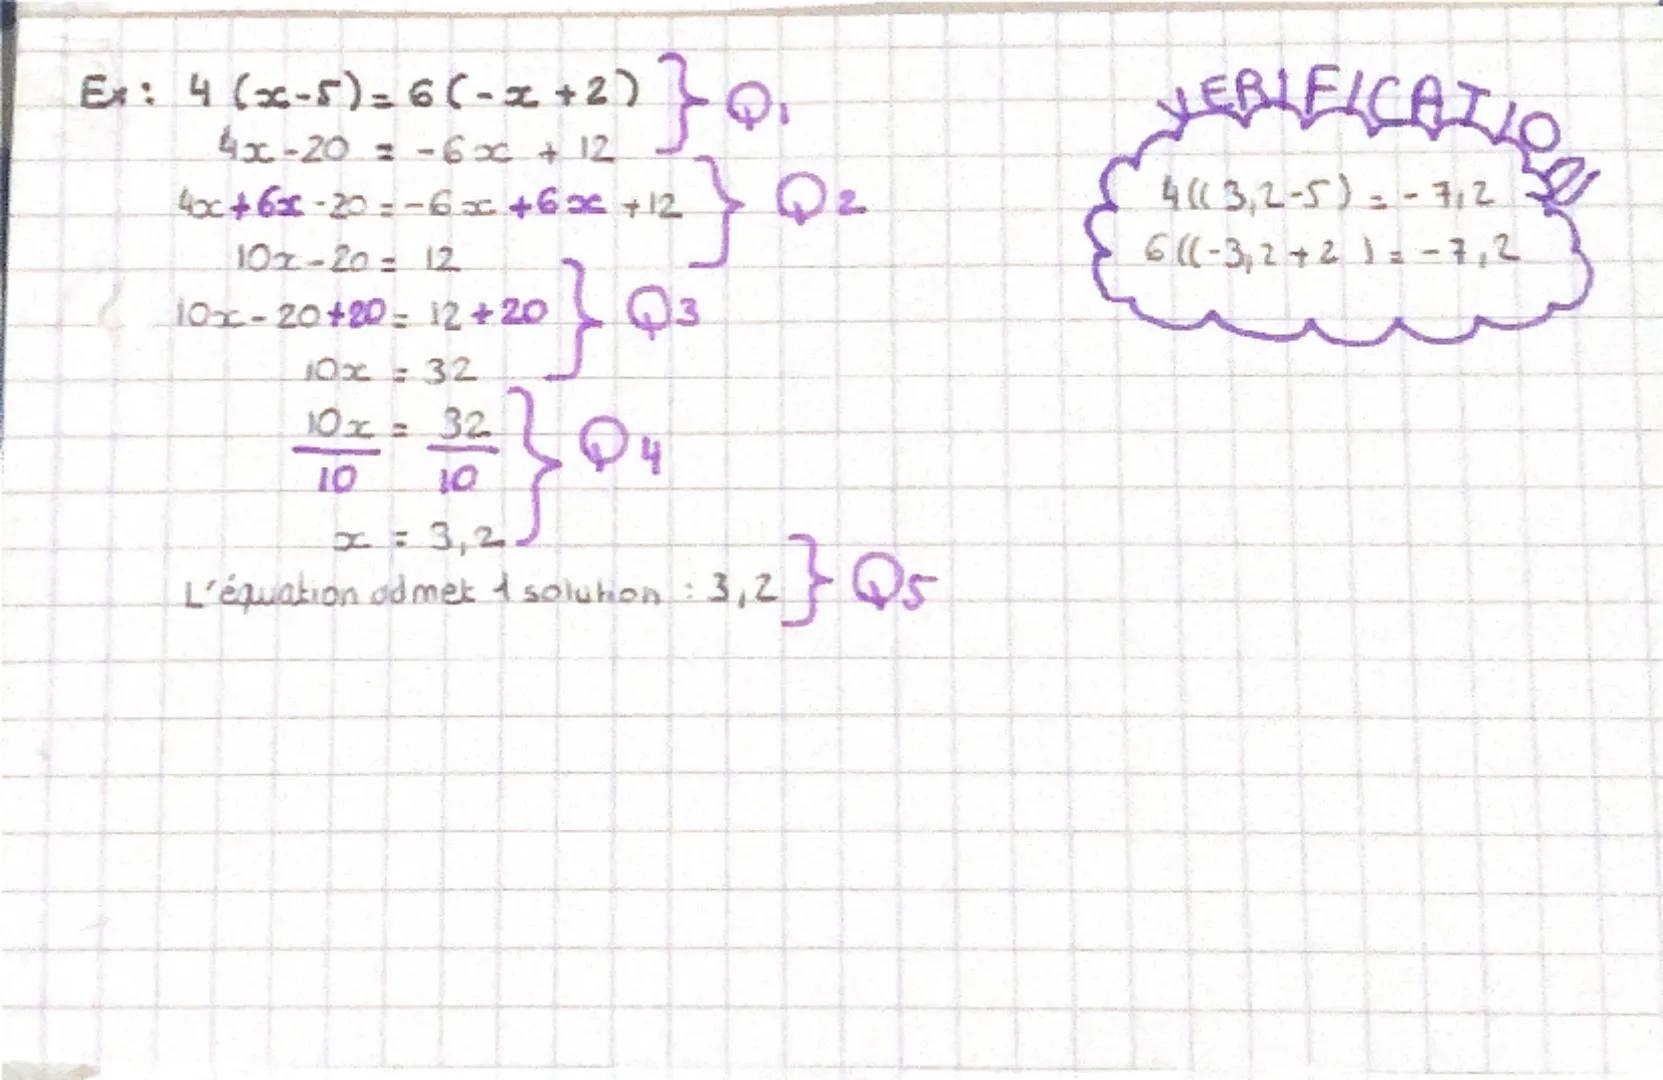 Ex : 4 (x-5) = 6 (-x +2) } Q1
4x -20 = -6x + 12
4x +6x -20 = -6x +6x +12 } Q2
10x - 20 = 12
10x - 20 +20 = 12 +20 } Q3
10x = 32
10x/10 = 32/10 } Q4
x = 3,2
L'équation admet 1 solution : 3,2 } Q5
VERIFICATION
4((3,2-5) = -7,2
6((-3,2+2) = -7,2